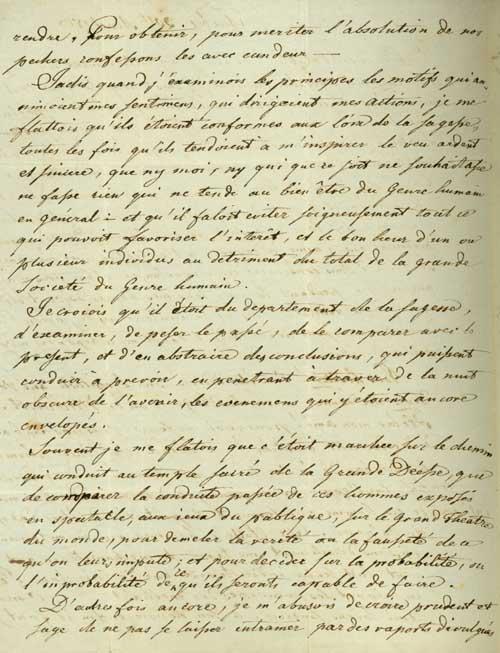 rendre. Pour obtenir, pour meriter l'absolution de nos
pechers confessons les avec candeur —
Jadis quand j'examinois les principes les motifs qui a-
nimoient mes sentimens, qui dirigoient mes actions, je me
flattois qu'ils étoient conformes aux loix de la sagesse,
toutes les fois qu'ils tendoient a m'inspirer le veu ardent
et sincere, que ny moi, ny qui que ce soit ne souhaitasse
ne fasse rien qui ne tende au bien être du Genre humain
en general – et qu'il faloit eviter soigneusement tout ce
qui pouvoit favoriser l'interêt, et le bonheur d'un ou
plusieur individus au detriment du total de la grande
Société du Genre humain.
Je croiois qu'il étoit du departement de la sagesse,
d'examiner, de peser le passé, de le comparer avec le
present, et d'en abstraire des conclusions, qui puissent
conduir à prevoir, en penetrant à traver de la nuit
obscure de l'avenir, les evenemens qui y etoient ancore
envelopés.
Souvent je me flatois que c'étoit marcher sur le chemin
qui conduit au temple sacré de la Grande Déesse, que
de comparer la conduite passée de ces hommes exposés
en spectable, aux ieux du publique, sur le Grand Theatre
du monde, pour demeler la verité ou la fausseté de ce
qu'on leur impute; et pour decider sur la probabilité, ou
l'improbabilité de ce qu'ils seront capable de faire.
D'autres fois ancore, je m'abusois de croire prudent et
sage de ne pas se laisser entrainer par des raports divulgués